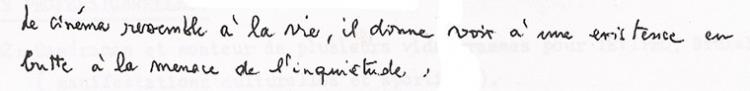 Le cinéma ressemble à la vie, il donne voix à une existence en
butte à la menace de l'inquiétude.